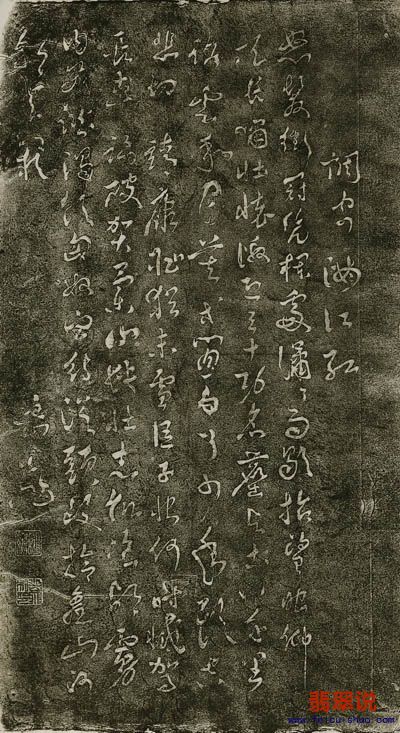 調寄滿江紅
怒髮衝冠凭欄處瀟瀟雨歇抬望眼仰
天長嘯壯懷激烈三十功名塵與土八千里
路雲和月莫等閒白了少年頭空
悲切靖康恥猶未雪臣子恨何時滅駕
長車踏破賀蘭山缺壯志飢餐胡虜
肉笑談渴飲匈奴血待從頭收拾舊山河
朝天闕
翡翠说
www.feicuishuo.com